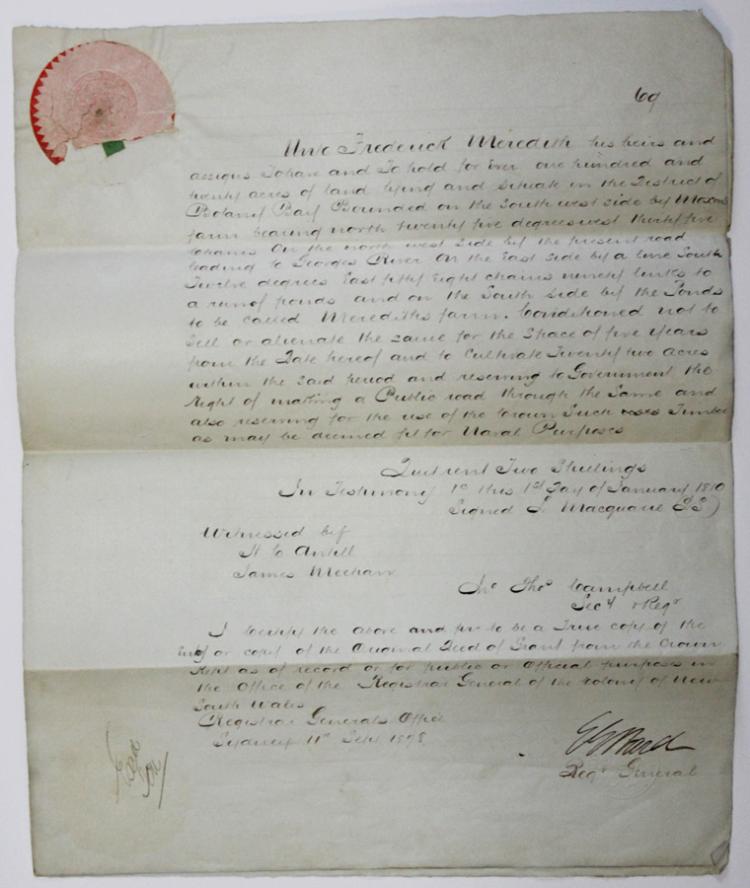 69
Unto Frederick Meredith his heirs and
assigns To have and To hold for Ever one hundred and
twenty acres of land lying and situate in the District of
Botany Bay Bounded on the South west side by Masons
farm bearing north twenty five degrees west thirty five
chains On the north west side by the present road
leading to Georges River On the East side by a line South
Twelve degrees East fifty Eight chains ninety links to
a run of ponds and on the South side by the Ponds
to be called Merediths farm. Conditioned not to
Sell or alienate the same for the Space of five Years
from the Date hereof and to Cultivate Twenty two Acres
within the said period and reserving to Government the
Right of making a Public road through the Same and
also reserving for the use of the Crown Such Timber
as may be deemed fit for Naval Purposes
Quit rent Two Shillings
In Testimony &c this 1st Day of January 1810
Signed L Macquarie LS)
Witnessed by
H C Antill
James Meehan
Jno Thos Campbell
Secy & Regr
I Certify the above and pre to be a True copy of the
or copy of the Original Deed of Grant from the Crown
Kept as of record or for public or Official purpose in
the Office of the Registrar General of the Colony of New
South Wales
Registrar Generals Office
Sydney 11th Sept 1878
E G Ward
Regr General